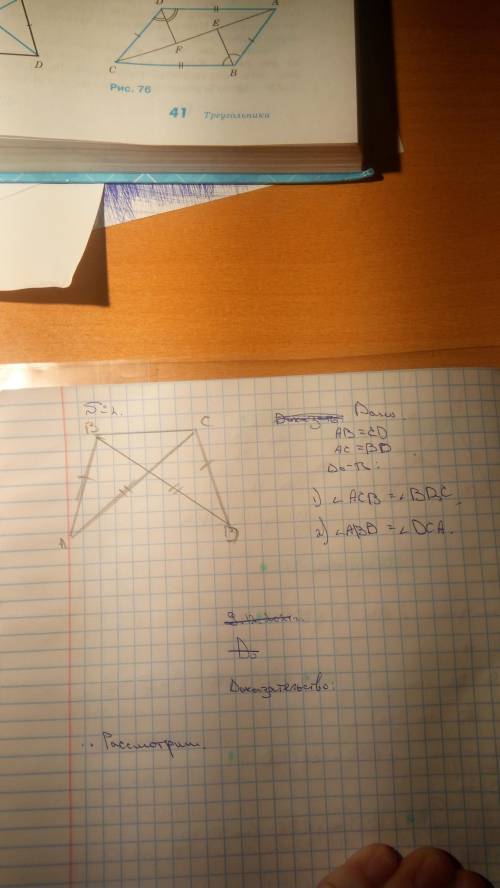 D
A
E
F
C
B
D
Рис. 76
41 Треугольника
B
C
A
D
Дано.
AB = CD
AC = BD
Д-ть:
1) ∠ACB = ∠BDC.
2) ∠ABD = ∠DCA.
До
Доказательство:
Рассмотрим.